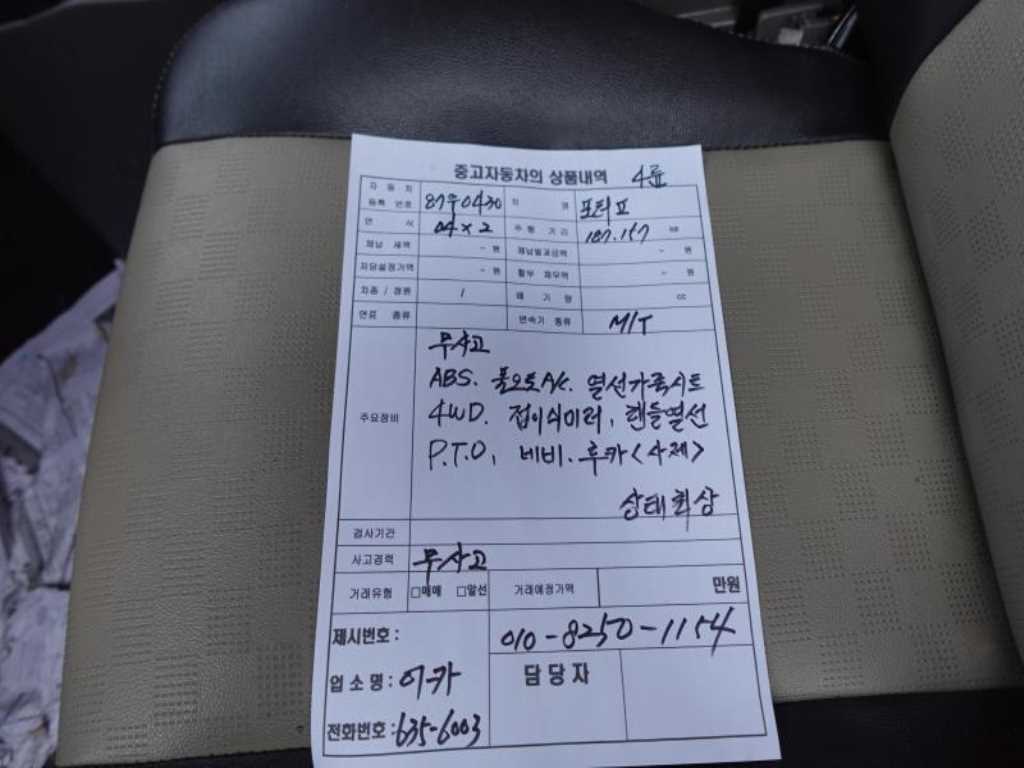 중고자동차의 상품내역 4륜
자동차 등록 번호 87우0430 차 명 포터Ⅱ
연 식 04×2 주행 거리 187.157 km
체납 세액 - 원 체납범과금액 - 원
저당설정가액 - 원 할부 채무액 - 원
차종 / 정원 / 배 기 량 cc
연료 종류 변속기 종류 M/T
주요장비
무사고
ABS. 풀오토A/C. 열선가죽시트
4WD. 접이식미러, 핸들열선
P.T.O, 네비. 후카<사제>
상태최상
검사기간
사고경력 무사고
거래유형 □매매 □알선 거래예정가액 만원
제시번호 : 010-8250-1154
업 소 명 : 이카 담 당 자
전화번호 : 635-6003